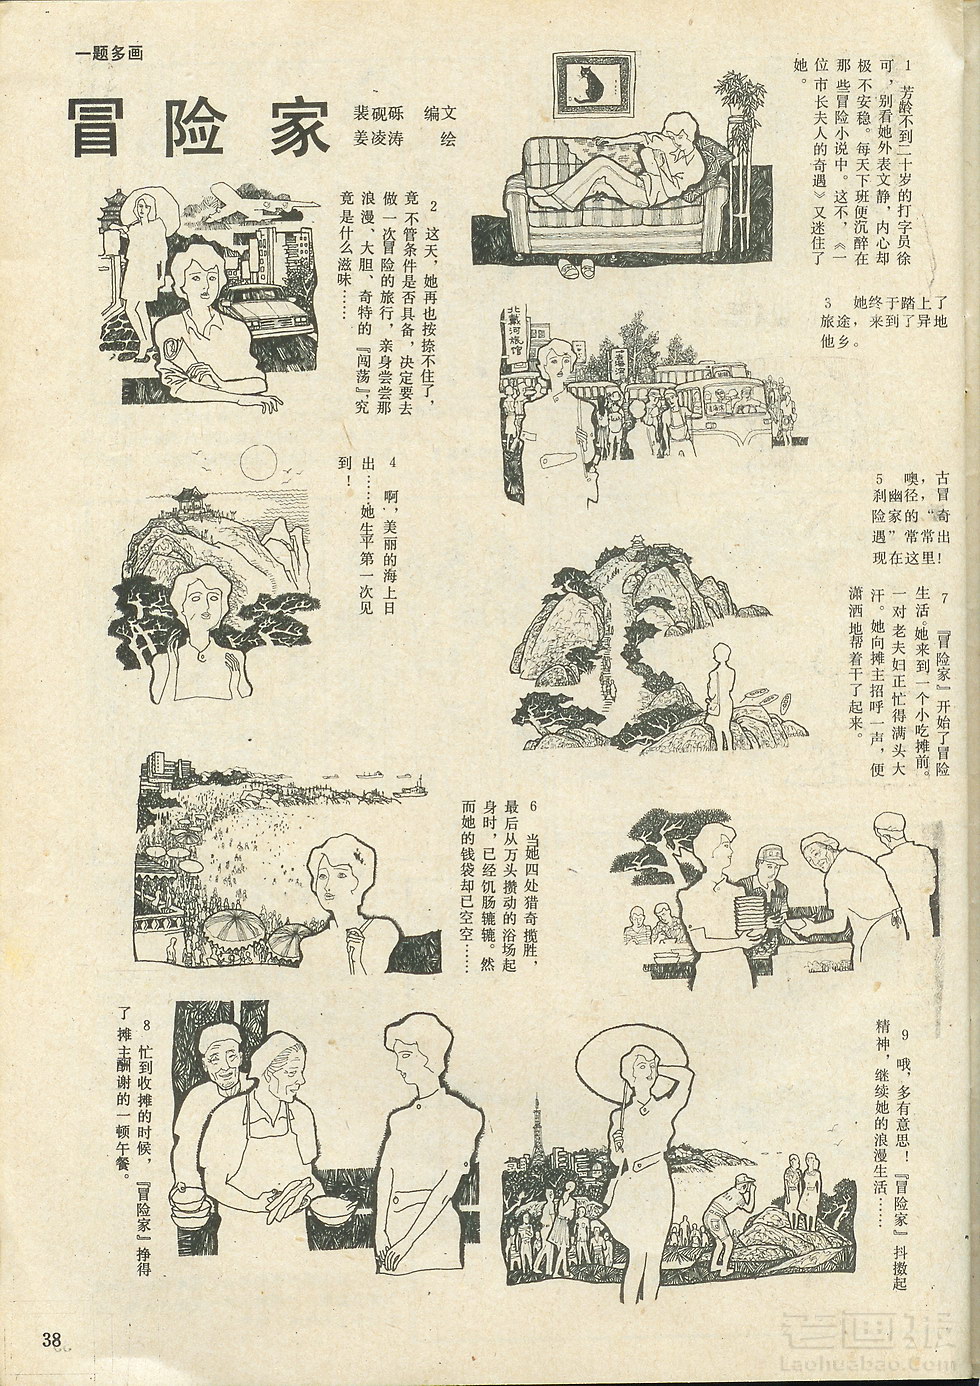 一题多画
冒险家
裴砚砾 编文
姜凌涛 绘
1 芳龄不到二十岁的打字员徐
可，别看她外表文静，内心却
极不安稳。每天下班便沉醉在
那些冒险小说中。这不，《一
位市长夫人的奇遇》又迷住了
她。
2 这天，她再也按捺不住了，
竟不管条件是否具备，决定要去
做一次冒险的旅行，亲身尝尝那
浪漫、大胆、奇特的『闯荡』，究
竟是什么滋味……
3 她终于踏上了
旅途，来到了异地
他乡。
北戴河旅馆
4 啊，美丽的海上日
出……她生平第一次见
到！
5 噢，古
刹幽径，冒
险家的“奇
遇”常常出
现在这里！
6 当她四处猎奇揽胜，
最后从万头攒动的浴场起
身时，已经饥肠辘辘。然
而她的钱袋却已空空……
7 『冒险家』开始了冒险
生活。她来到一个小吃摊前。
一对老夫妇正忙得满头大
汗。她向摊主招呼一声，便
潇洒地帮着干了起来。
8 忙到收摊的时候，『冒险家』挣得
了摊主酬谢的一顿午餐。
9 哦，多有意思！『冒险家』抖擞起
精神，继续她的浪漫生活……
38
老画报
Laohuabao.Com